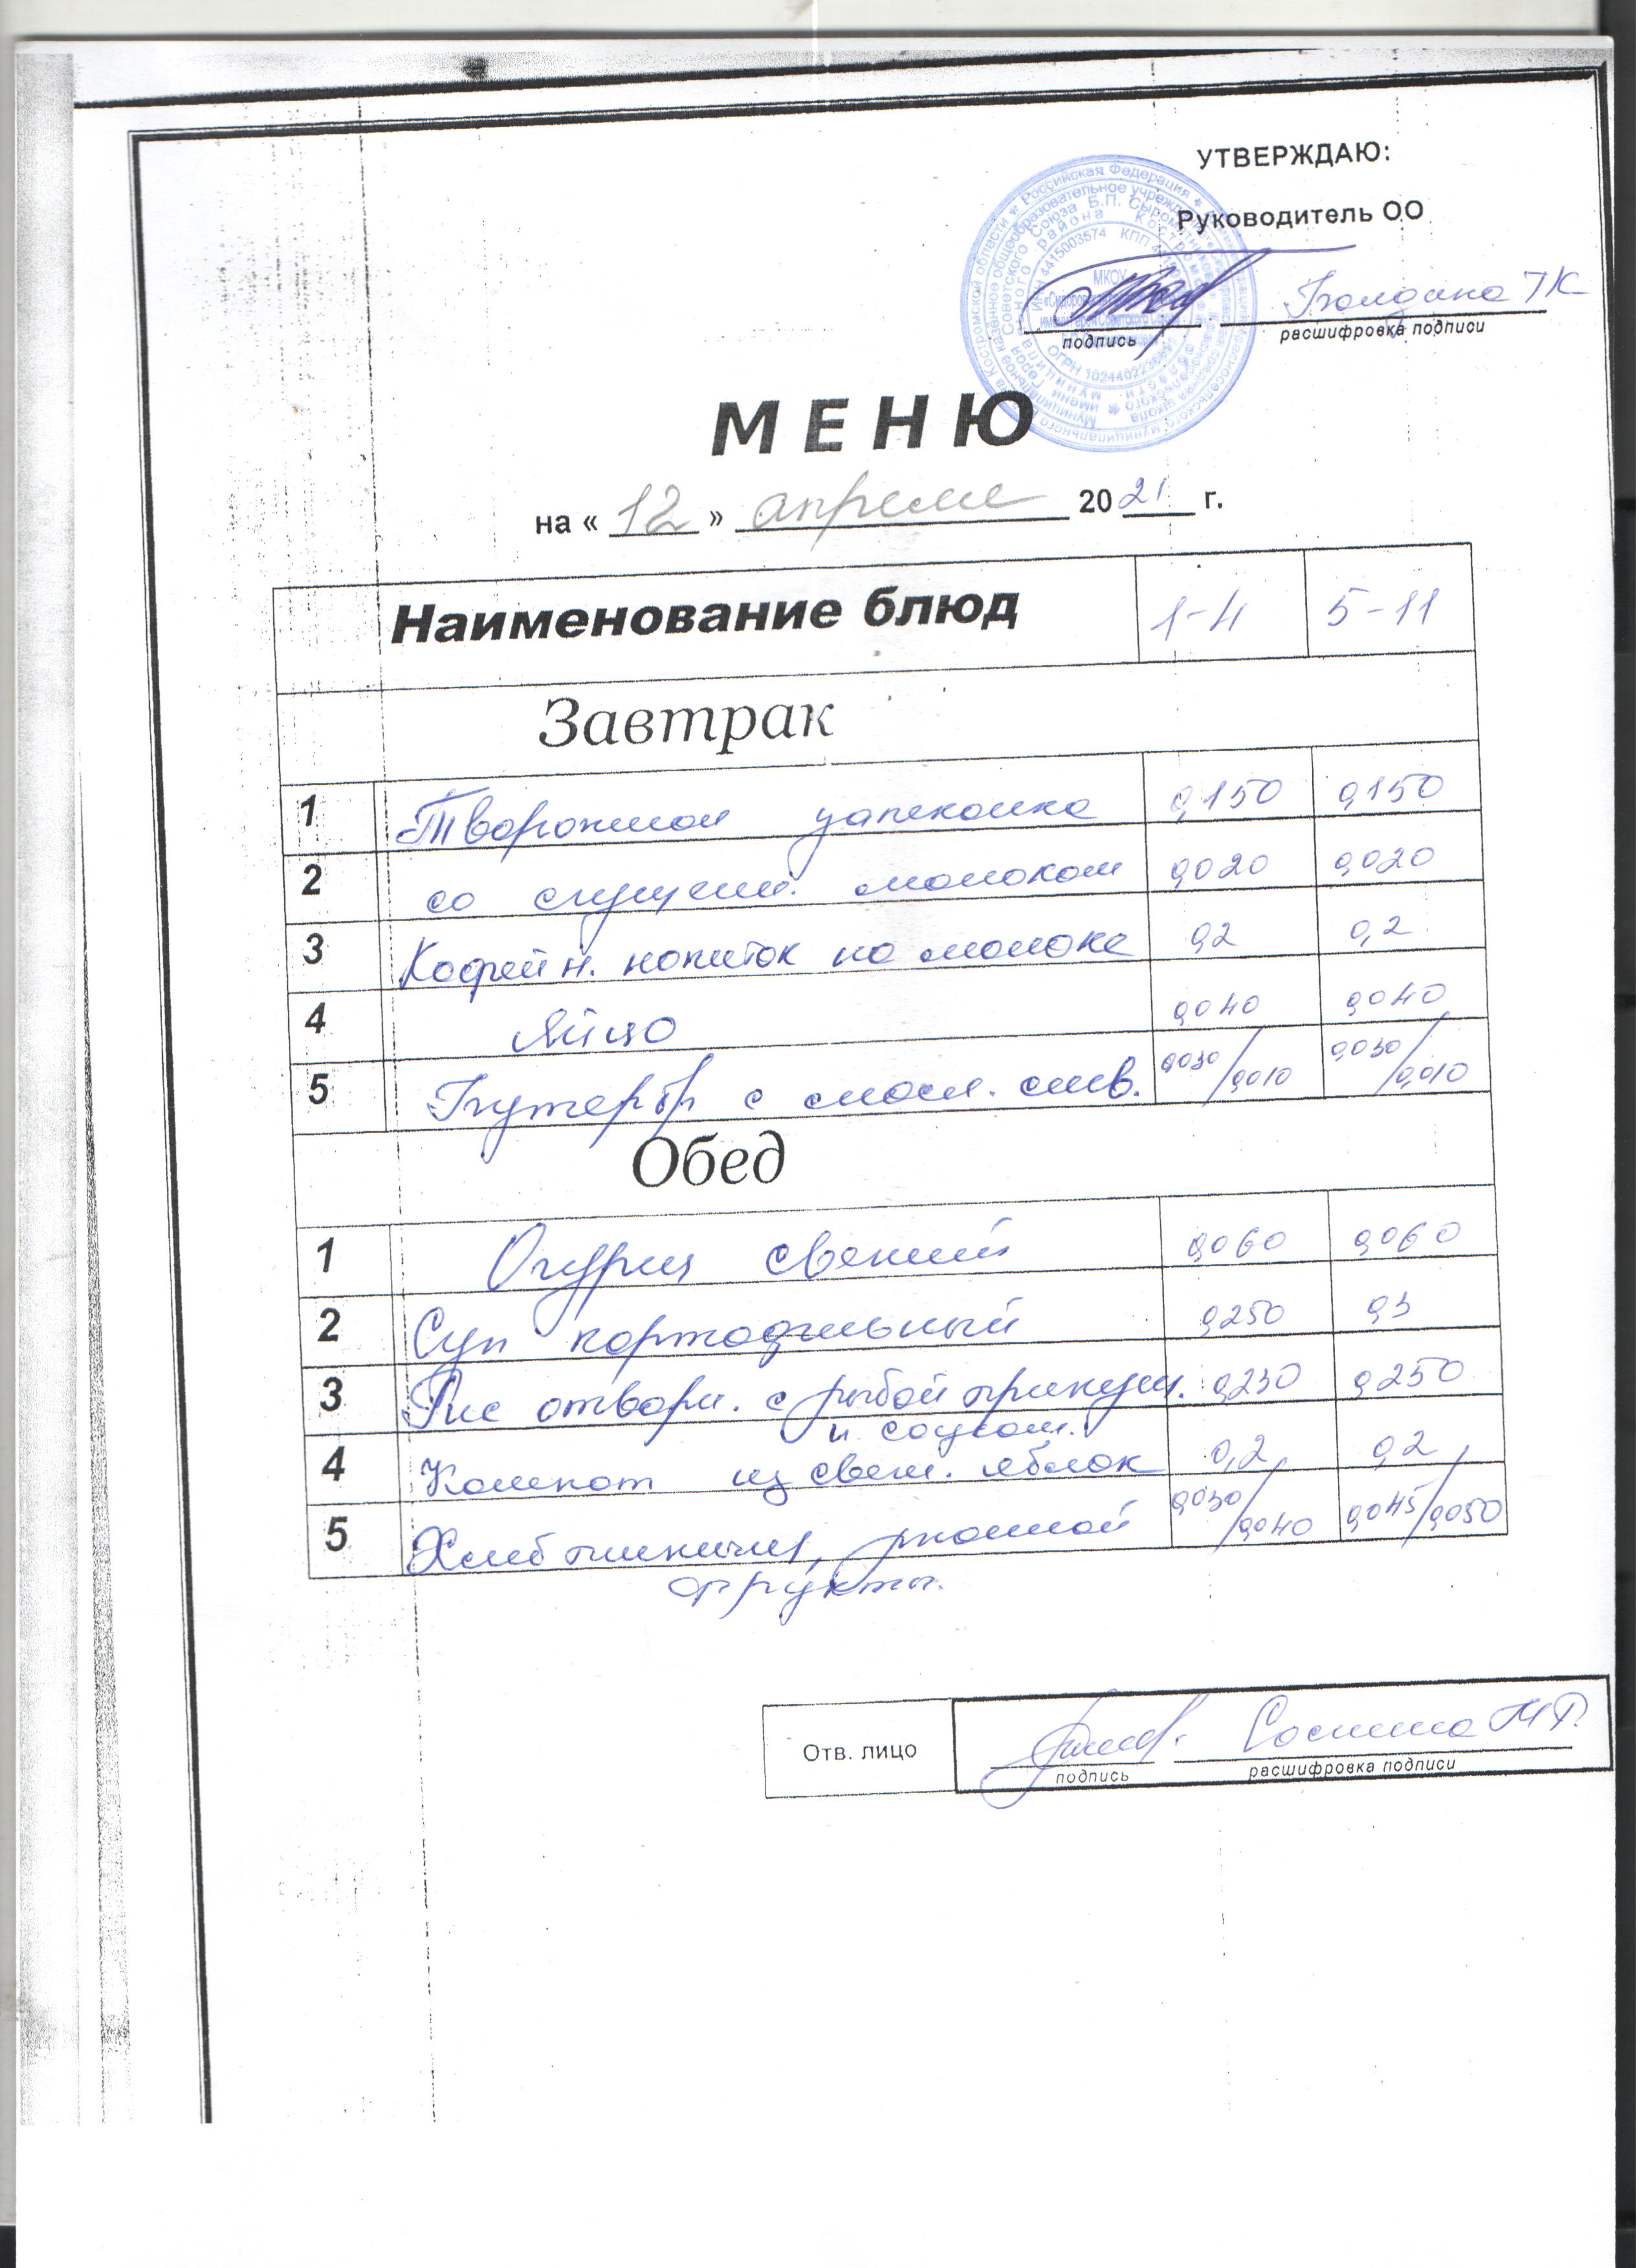 УТВЕРЖДАЮ:
Руководитель ОО
подпись
расшифровка подписи
МЕНЮ
на « 12 » апреля 2021 г.
Наименование блюд 1-4 5-11
Завтрак
1 Творожная запеканка 0,150 0,150
2 со сгущен. молоком 0,020 0,020
3 Кофейн. напиток на молоке 0,2 0,2
4 Яйцо 0,040 0,040
5 Бутербр с масл. слив. 0,030/0,010 0,030/0,010
Обед
1 Огурец свежий 0,060 0,060
2 Суп картофельный 0,250 0,3
3 Рис отварн. с рыбой припущ. 0,230 0,250
и соусом.
4 Компот из свеж. яблок 0,2 0,2
5 Хлеб пшеничн, ржаной 0,030/0,040 0,045/0,050
фрукты.
Отв. лицо
подпись
расшифровка подписи